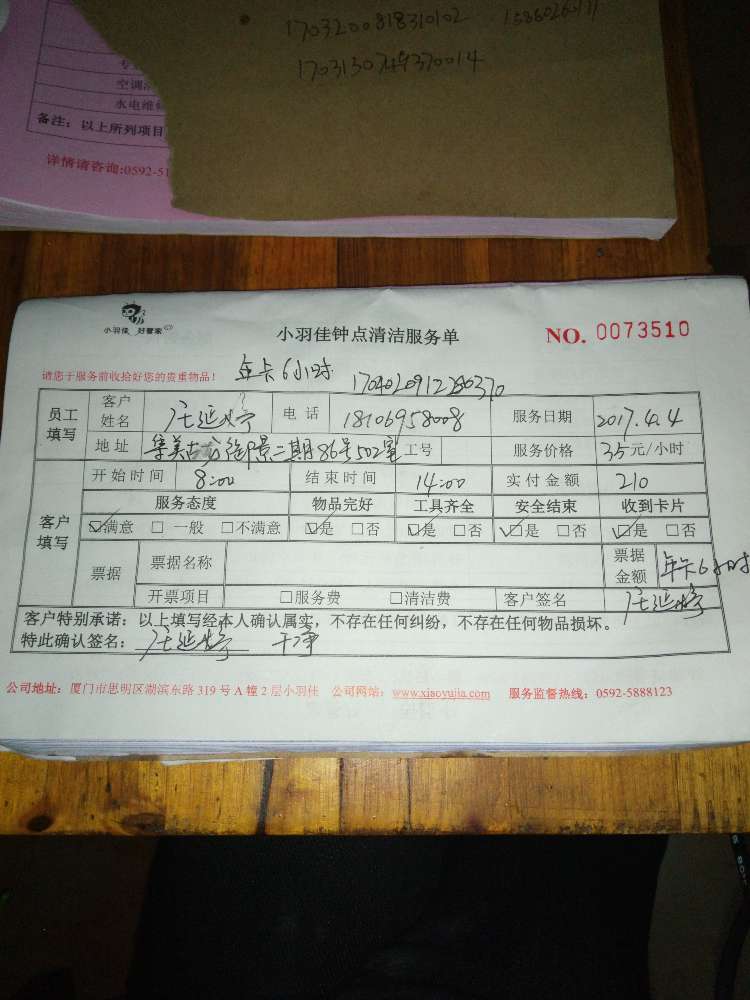 1703200818310102
1703130749370014
空调清
水电维修
备注：以上所列项目
详情请咨询:0592-51
小羽佳 好管家
小羽佳钟点清洁服务单
NO. 0073510
请您于服务前收拾好您的贵重物品！
年卡6小时
员工填写 客户姓名 电话 18106958008 服务日期 2017.4.4
地址 集美古龙御景二期86号502室 工号 服务价格 35元/小时
客户填写 开始时间 8:00 结束时间 14:00 实付金额 210
服务态度 物品完好 工具齐全 安全结束 收到卡片
☑满意 □一般 □不满意 ☑是 □否 ☑是 □否 ☑是 □否 ☑是 □否
票据 票据名称 票据金额 年卡6小时
开票项目 □服务费 □清洁费 客户签名
客户特别承诺：以上填写经本人确认属实，不存在任何纠纷，不存在任何物品损坏。
特此确认签名： 干净
公司地址：厦门市思明区湖滨东路319号A幢2层小羽佳 公司网站：www.xiaoyujia.com 服务监督热线：0592-5888123